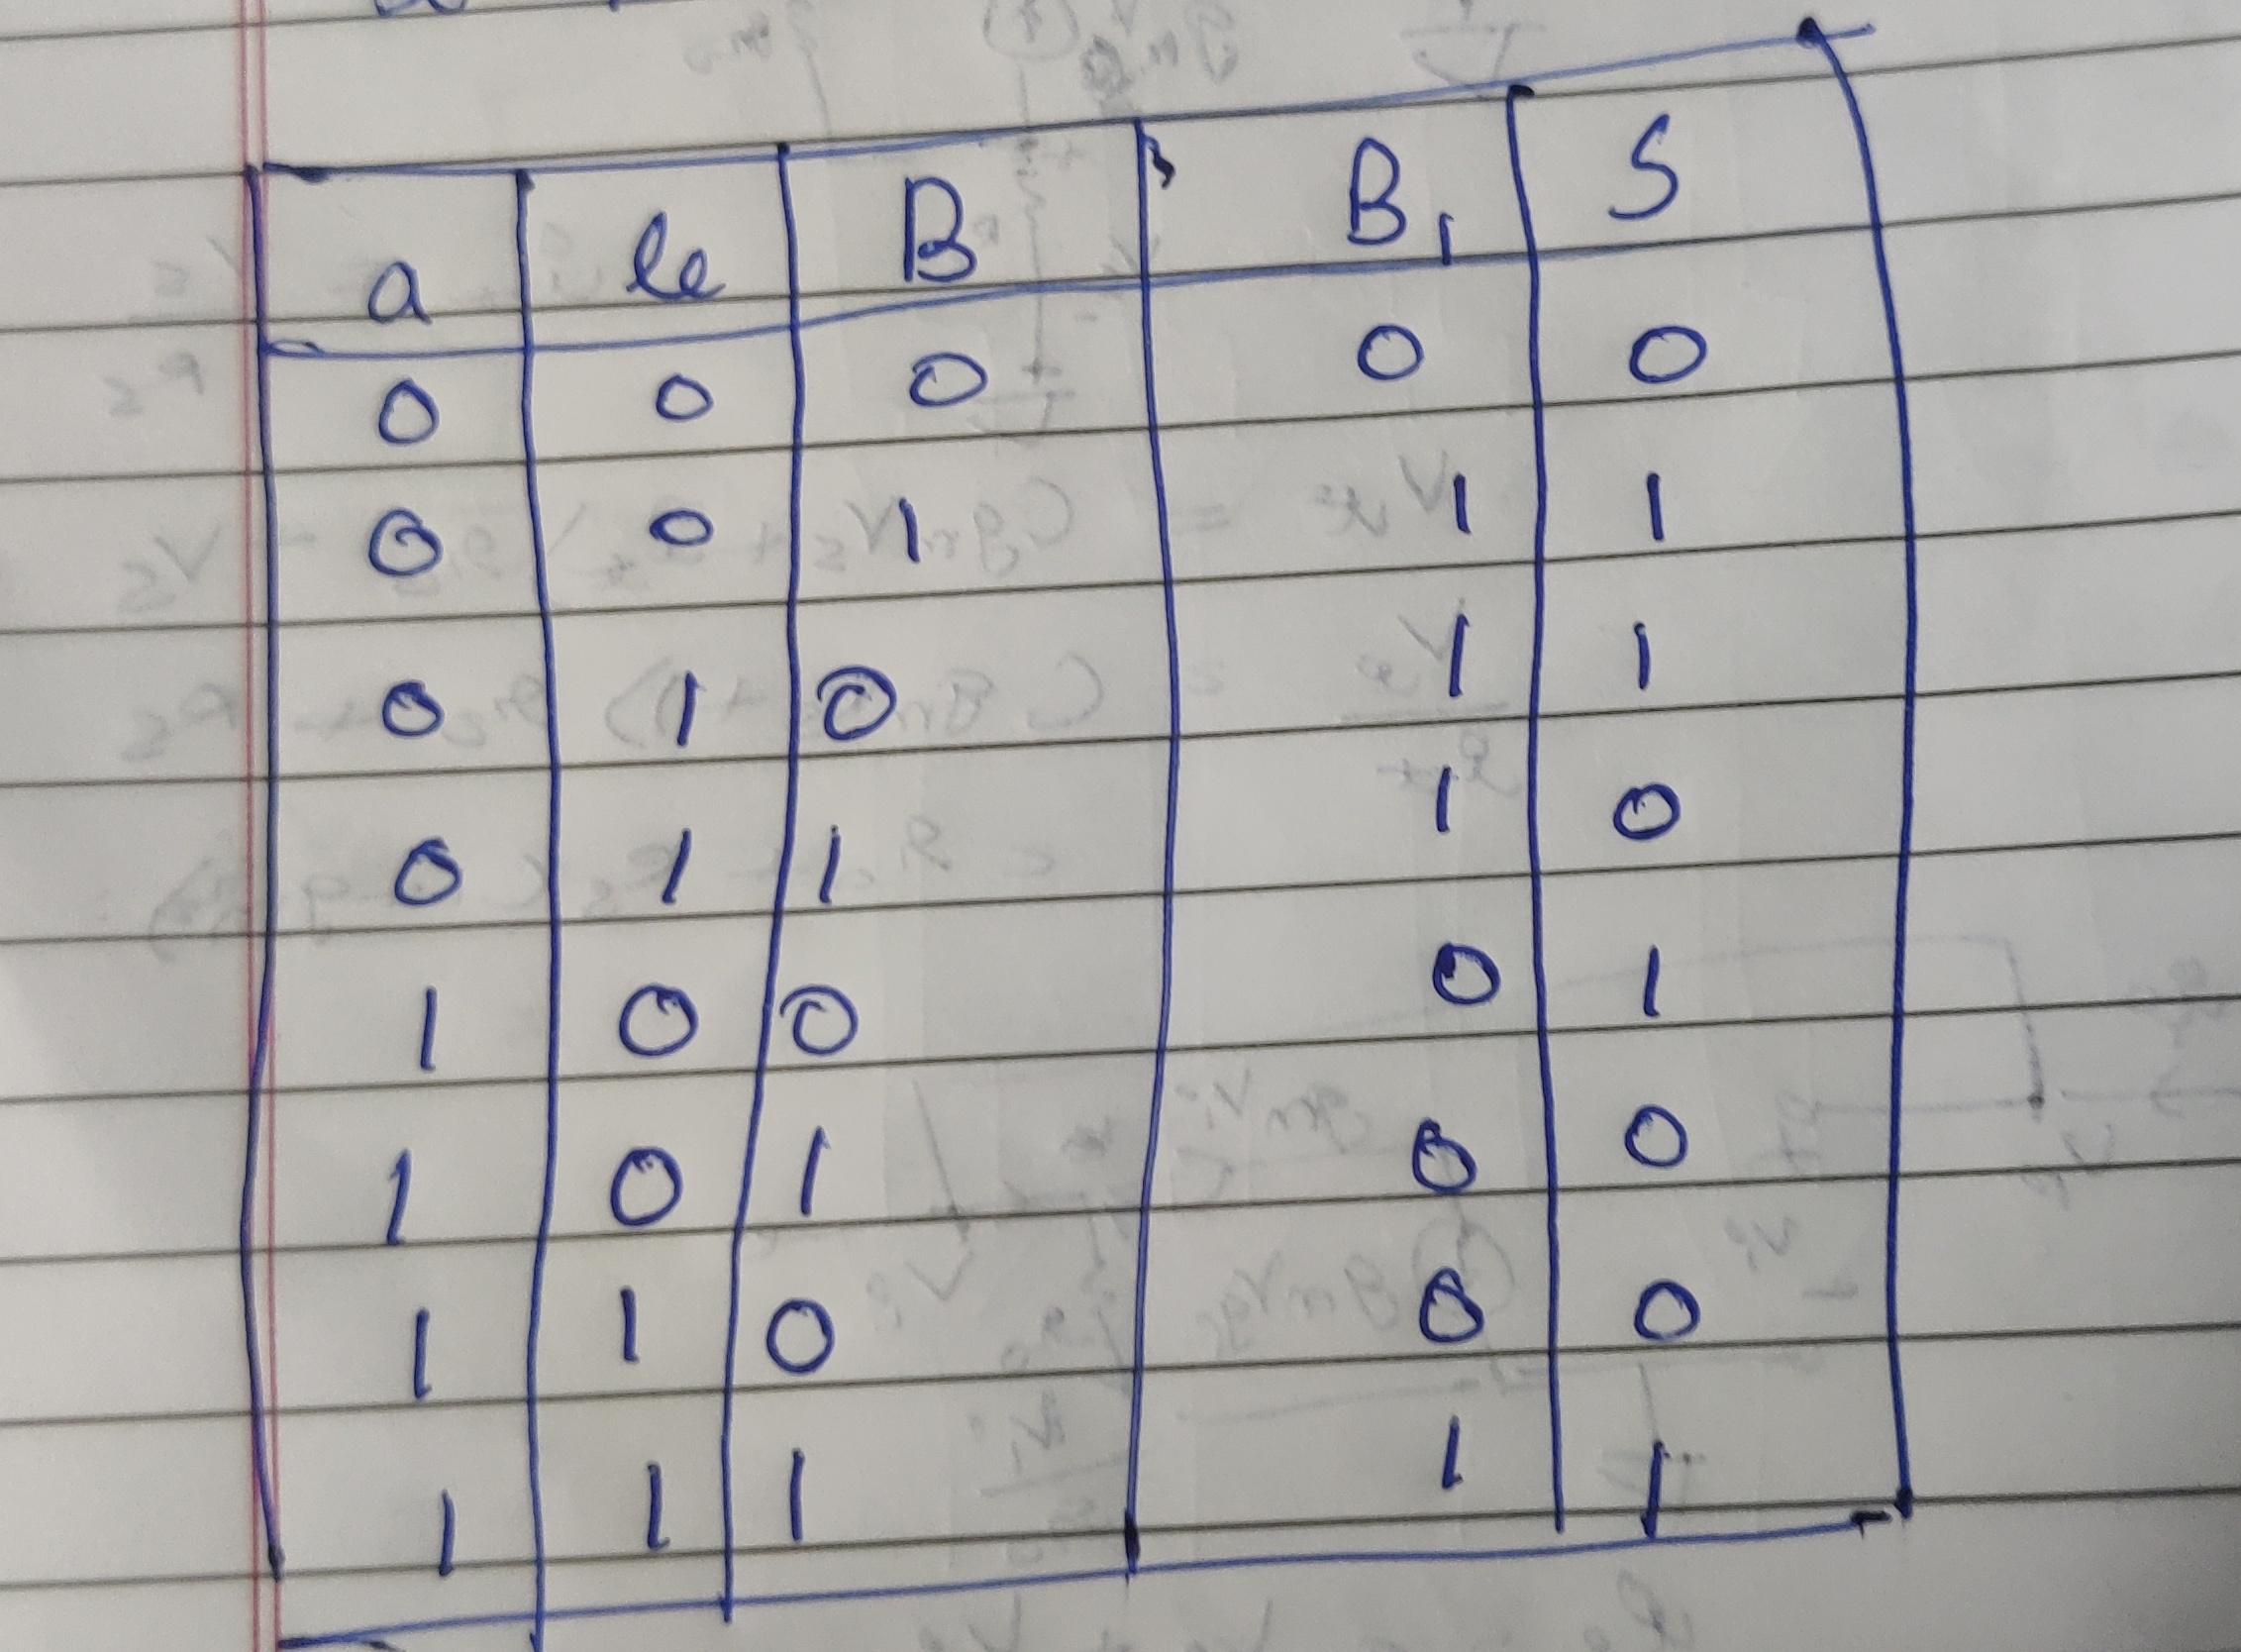 a b B B1 S
0 0 0 0 0
0 0 1 1 1
0 1 0 1 1
0 1 1 1 0
1 0 0 0 1
1 0 1 0 0
1 1 0 0 0
1 1 1 1 1